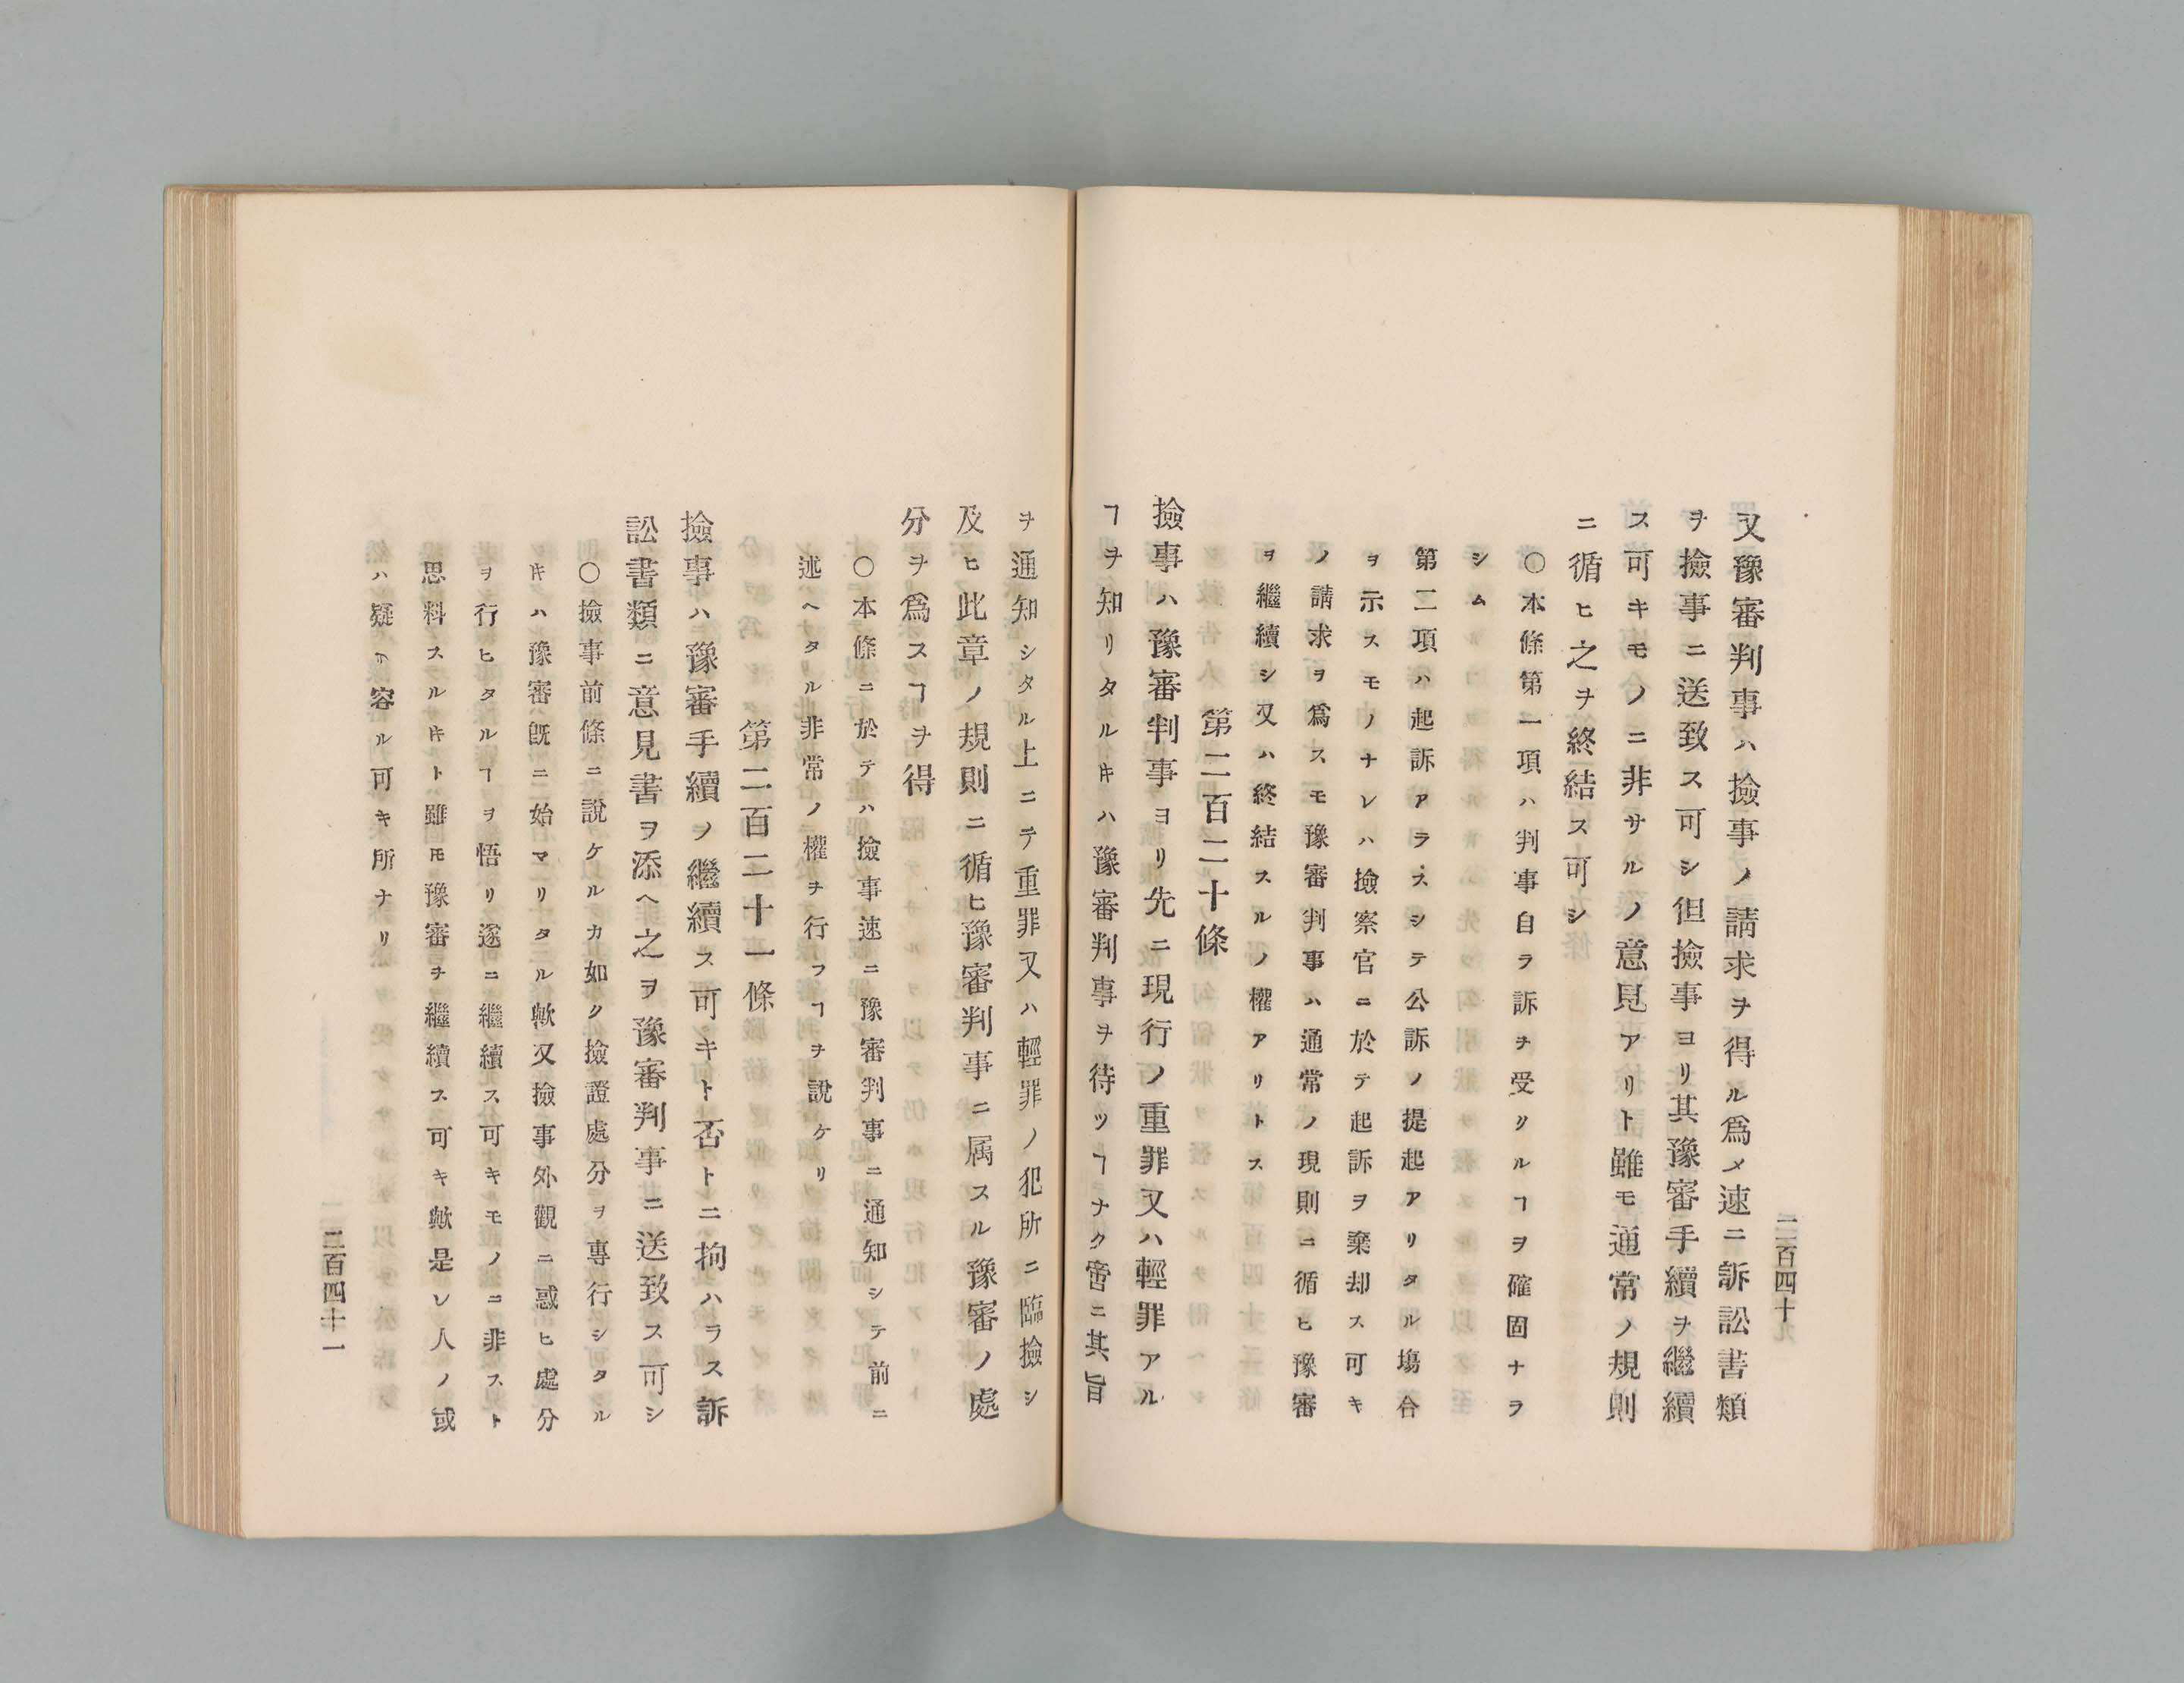 二百四十
又豫審判事ハ撿事ノ請求ヲ得ル爲メ速ニ訴訟書類
ヲ撿事ニ送致ス可シ但撿事ヨリ其豫審手續ヲ繼續
ス可キモノニ非サルノ意見アリト雖モ通常ノ規則
ニ循ヒ之ヲ終結ス可シ
○本條第一項ハ判事自ラ訴ヲ受クルヿヲ確固ナラ
シム
第二項ハ起訴アラスシテ公訴ノ提起アリタル塲合
ヲ示スモノナレハ撿察官ニ於テ起訴ヲ棄却ス可キ
ノ請求ヲ爲スモ豫審判事ハ通常ノ現則ニ循ヒ豫審
ヲ繼續シ又ハ終結スルノ權アリトス
第二百二十條
撿事ハ豫審判事ヨリ先ニ現行ノ重罪又ハ輕罪アル
ヿヲ知リタルキハ豫審判事ヲ待ツヿナク啻ニ其旨
ヲ通知シタル上ニテ重罪又ハ輕罪ノ犯所ニ臨撿シ
及ヒ此章ノ規則ニ循ヒ豫審判事ニ属スル豫審ノ處
分ヲ爲スヿヲ得
○本條ニ於テハ撿事速ニ豫審判事ニ通知シテ前ニ
述ヘタル非常ノ權ヲ行フヿヲ說ケリ
第二百二十一條
撿事ハ豫審手續ノ繼續ス可キト否トニ拘ハラス訴
訟書類ニ意見書ヲ添ヘ之ヲ豫審判事ニ送致ス可シ
○撿事前條ニ說ケルカ如ク撿證處分ヲ專行シタル
𪜈ハ豫審旣ニ始マリタル歟又撿事外觀ニ惑ヒ處分
ヲ行ヒタルヿヲ悟リ遂ニ繼續ス可キモノニ非スト
思料スルキト雖𪜈豫審ヲ繼續ス可キ歟是レ人ノ或
ハ疑ヲ容ル可キ所ナリ
二百四十一